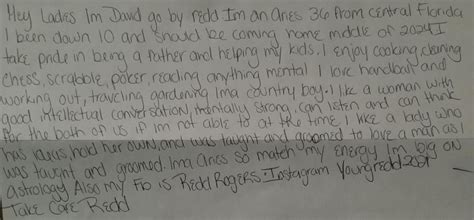 Hey Ladies Im David go by redd Im an Aries 36 from central Florida
I been down 10 and should be coming home middle of 2024 I
take pride in being a father and helping my kids. I enjoy cooking, cleaning
chess, scrabble, poker, reading anything mental I love handball and
working out, traveling gardening Ima country boy. I like a woman with
good intellectual conversation, mentally strong, can listen and can think
for the both of us if im not able to at the time I like a lady who
has, hold her own, and was taught and groomed to love a man as I
was taught and groomed. Ima Aries so match my energy Im big on
astrology Also my FB is Redd Rogers. Instagram Youngredd
Take Care Redd